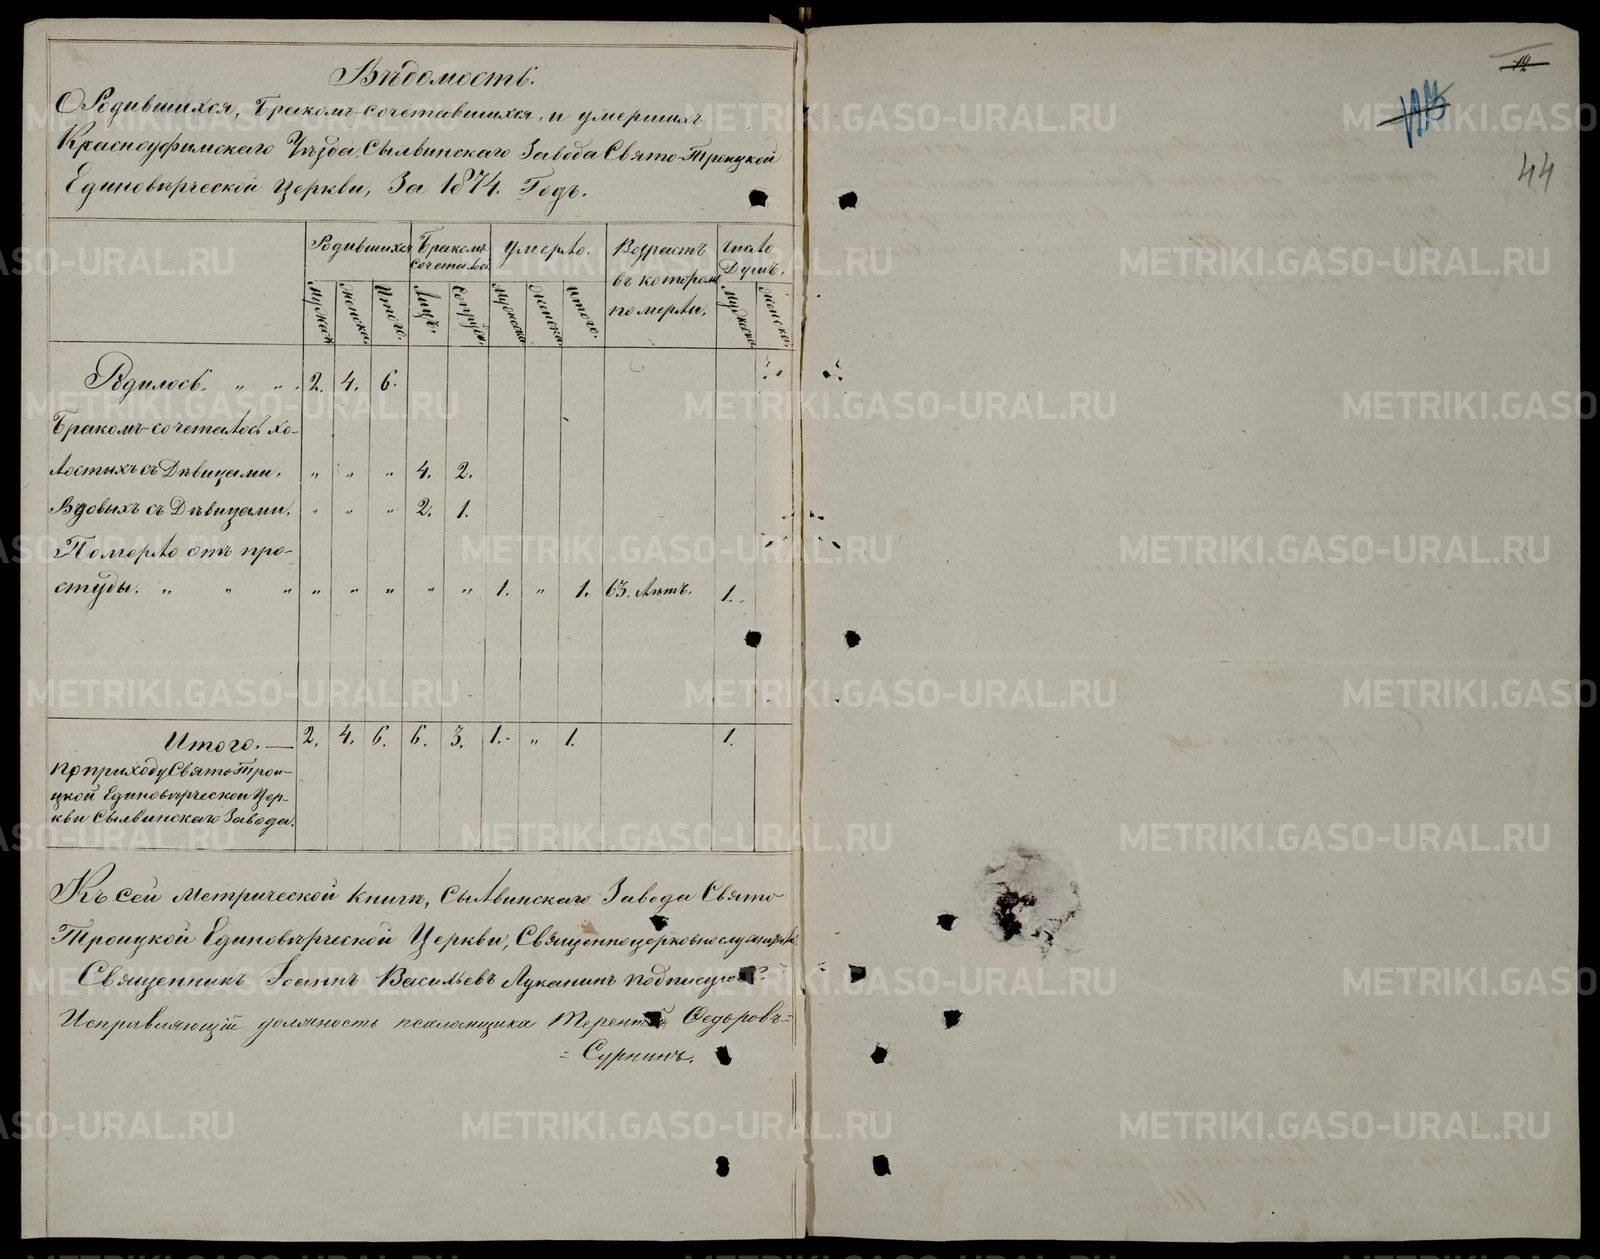 Вѣдомость.
О Родившихся, Бракомъ-сочетавшихся, и умершихъ
Красноуфимскаго Уѣзда, Сылвинскаго Завода Свято-Троицкой
Единовѣрческой Церкви, За 1874. Годъ.
Родившихся Бракомъ сочеталось Умерло. Возрастъ въ которомъ померли. Число Душъ.
Мужеска Женска. Итого. Лицъ. Супруж. Мужеска Женска. Итого. Мужеска. Женска.
Родилось. „ „ 2. 4. 6.
Бракомъ-сочеталось хо-
лостыхъ съ Дѣвицами. „ „ „ 4. 2.
Вдовыхъ съ Дѣвицами. „ „ „ 2. 1.
Померло отъ про-
студы. „ „ „ „ „ „ „ „ 1. „ 1. 63. Лѣтъ. 1.
Итого. — 2. 4. 6. 6. 3. 1. „ 1. 1.
По приходу Свято Трои-
цкой Единовѣрческой Цер-
кви Сылвинскаго Завода.
Къ сей Метрической книгѣ, Сылвинскаго Завода Свято
Троицкой Единовѣрческой Церкви, Священноцерковнослужители
Священникъ Іоаннъ Васильевъ Луканинъ подписуюсь
Исправляющій должность псаломщика Терентій Ѳедоровъ=
= Суркинъ.
19
123
44
METRIKI.GASO-URAL.RU